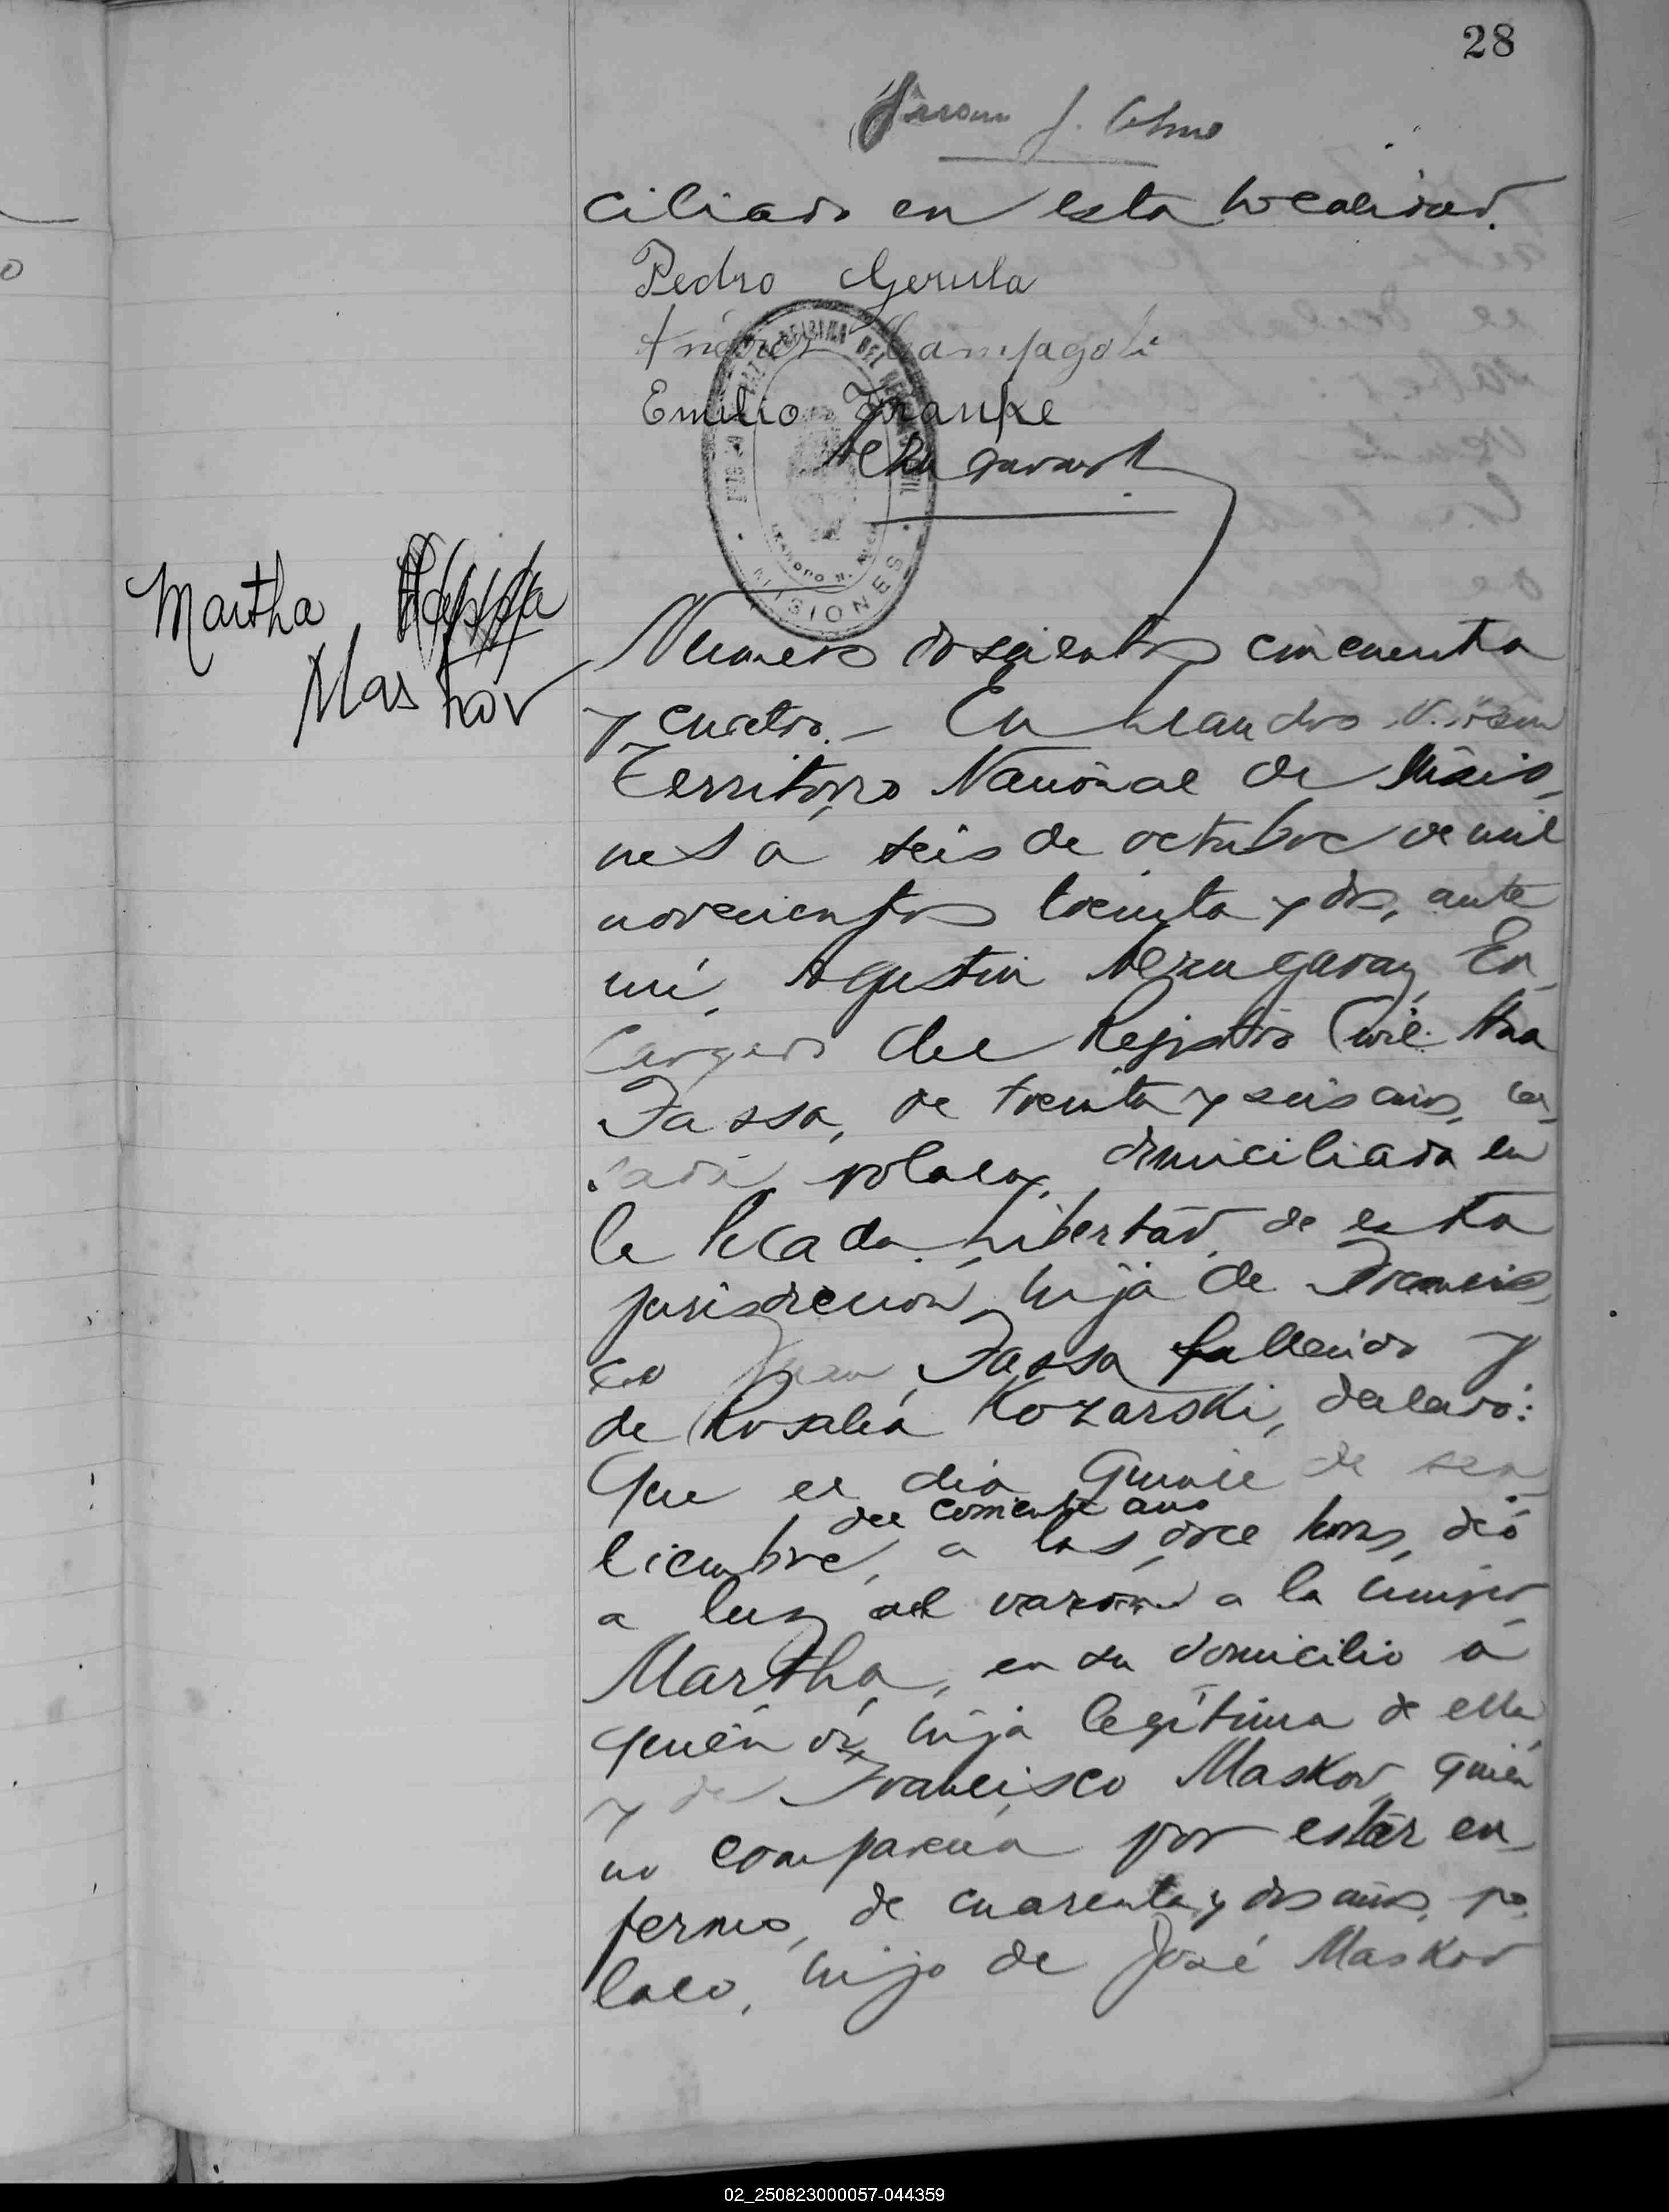 28
ciliado en esta localidad.
Pedro Gerula
Andrés Campagoli
Emilio Franke
MISIONES
Martha
Maskov
Numero doscientos cincuenta
y cuatro.- En Leandro N. Alem
Territorio Nacional de Misio-
nes a seis de octubre de mil
novecientos treinta y dos, ante
mi, Agustin Verzugaray, En-
cargado del Registro Civil Ana
Fassa, de treinta y seis años, ca-
sada, polaca, domiciliada en
la Picada Libertad, de esta
jurisdiccion, hija de Francis-
co Juan Fassa fallecido y
de Rosalia Kozarski, declaró:
Que el dia quince de sep-
del corriente año
tiembre, a las doce horas, dió
a luz al varon a la mujer
Martha, en su domicilio á
quién es hija legítima de ella
y de Francisco Maskov, quién
no comparecia por estár en-
fermo, de cuarenta y dos años, po-
laco, hijo de José Maskov
02_250823000057-044359